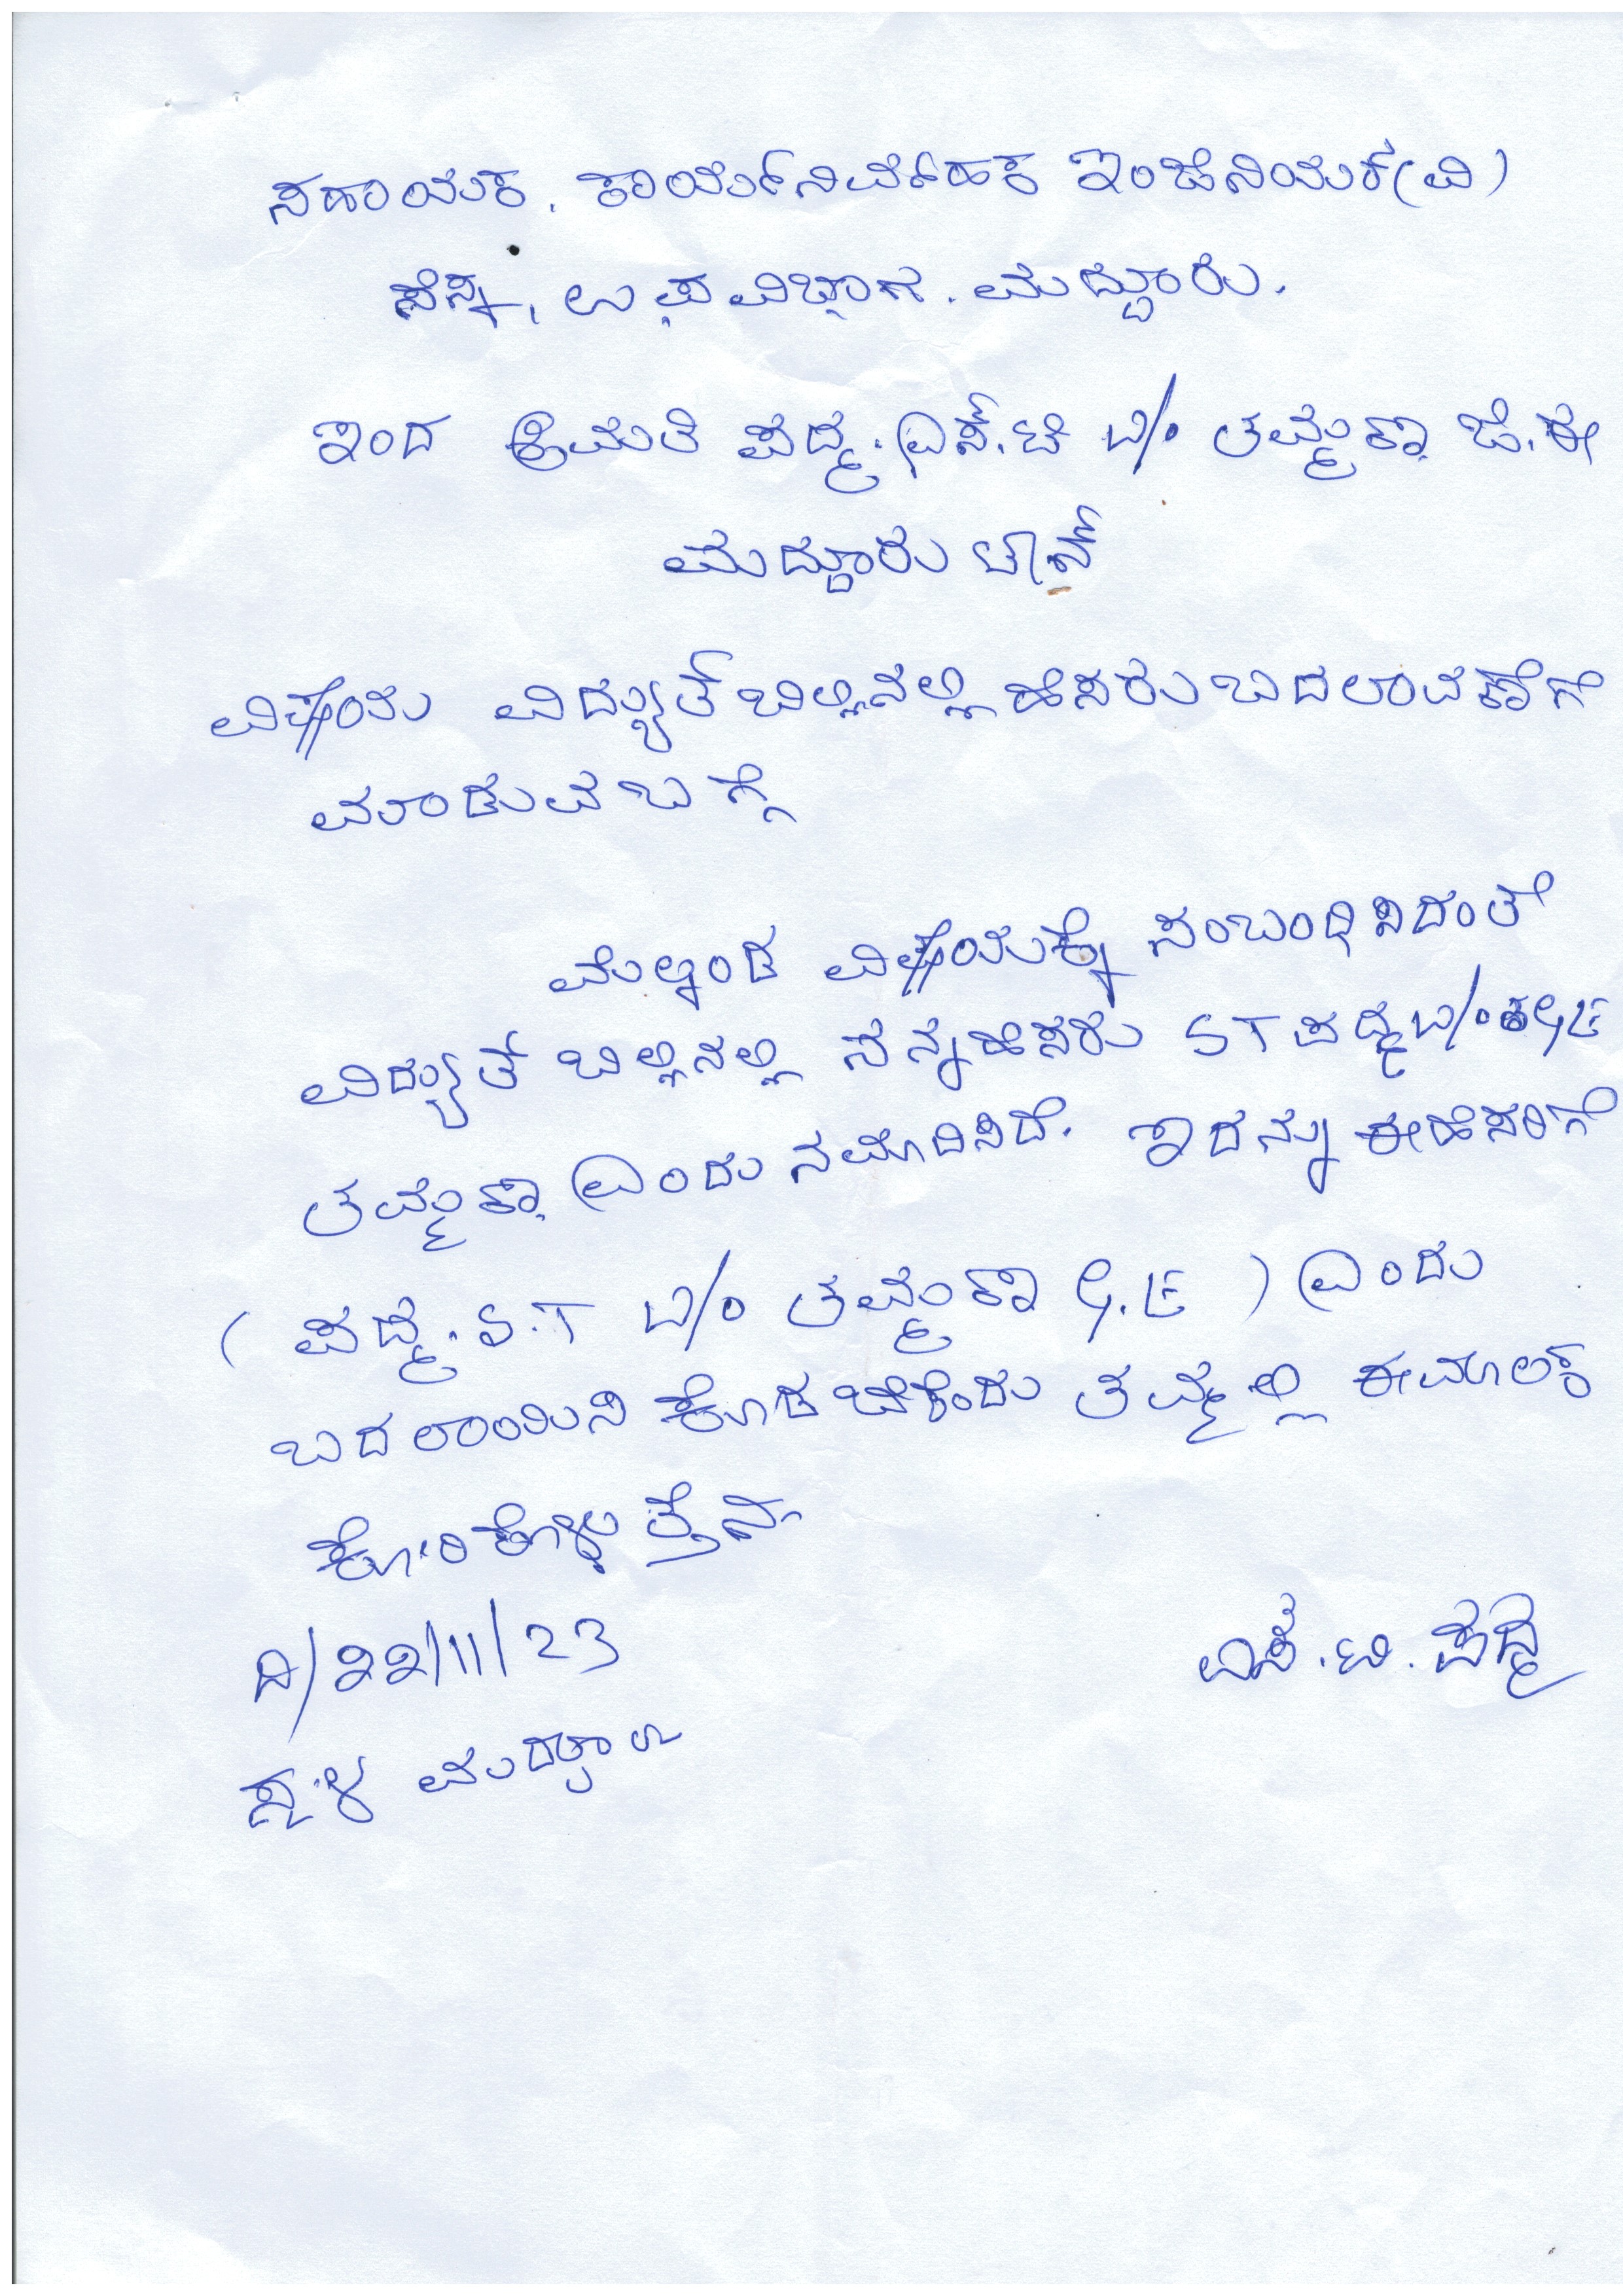 ಸಹಾಯಕ. ಕಾರ್ಯನಿರ್ವಹಕ ಇಂಜಿನಿಯರ್(ವಿ)
ಸೆಸ್ಕ, ಉಪವಿಭಾಗ. ಮದ್ದೂರು.
ಇಂದ ಶ್ರೀಮತಿ ಪದ್ಮ.ಎಸ್.ಟಿ W/o ತಮ್ಮಣ್ಣ ಜಿ.ಈ
ಮದ್ದೂರು ಟೌನ್
ವಿಷಯ ವಿದ್ಯುತ್ ಬಿಲ್ಲಿನಲ್ಲಿ ಹೆಸರು ಬದಲಾವಣೆಗೆ
ಮಾಡುವ ಬಗ್ಗೆ
ಮೇಲ್ಕಂಡ ವಿಷಯಕ್ಕೆ ಸಂಬಂಧಿಸಿದಂತೆ
ವಿದ್ಯುತ್ ಬಿಲ್ಲಿನಲ್ಲಿ ನನ್ನ ಹೆಸರು ST ಪದ್ಮ W/o
ಎಂದು ನಮೂದಿಸಿದೆ. ಇದನ್ನು ಈ ಹೆಸರಿಗೆ
( ಪದ್ಮ.S.T W/o ತಮ್ಮಣ್ಣ G.E ) ಎಂದು
ಬದಲಾಯಿಸಿ ಕೊಡಬೇಕೆಂದು ತಮ್ಮಲ್ಲಿ ಈ ಮೂಲಕ
ಕೋರಿಕೊಳ್ಳುತ್ತೇನೆ
ದಿ/22/11/23
ಎಸ್.ಟಿ.ಪದ್ಮ
ಸ್ಥಳ ಮದ್ದೂರು